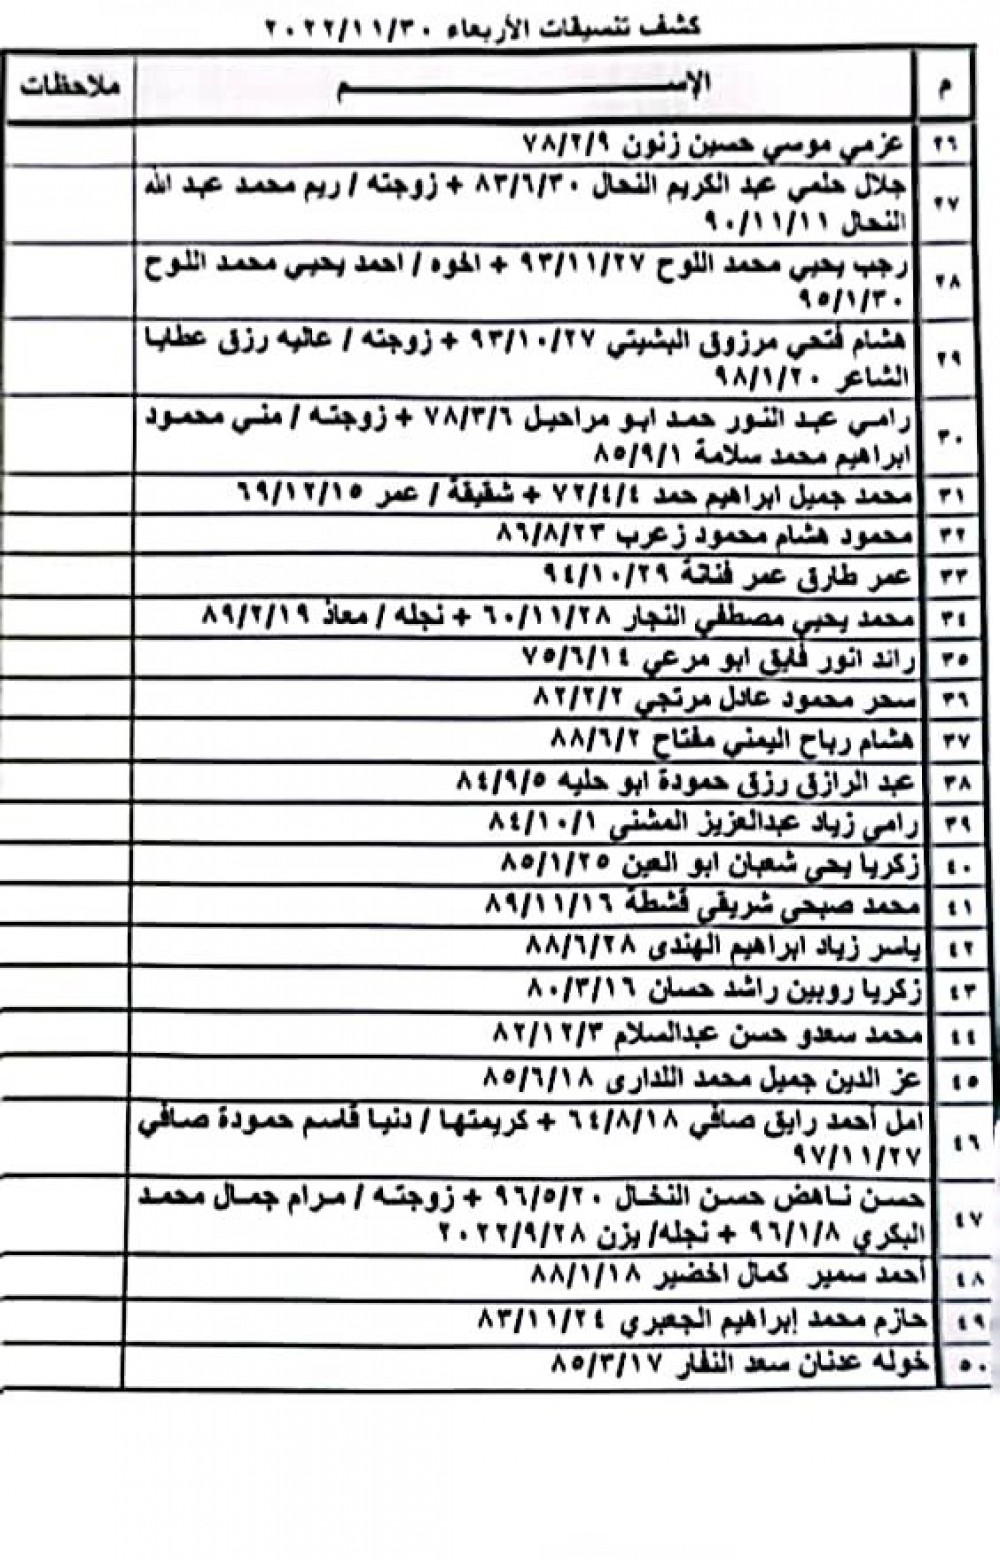 كشف تنسيقات الأربعاء ٢٠٢٢/١١/٣٠
م الإســــــــم ملاحظات
٢٦ عزمي موسي حسين زنون ٧٨/٢/٩
٢٧ جلال حلمي عبد الكريم النحال ٨٣/٦/٣٠ + زوجته / ريم محمد عبد الله
النحال ٩٠/١١/١١
٢٨ رجب يحيي محمد اللوح ٩٣/١١/٢٧ + اخوه / احمد يحيي محمد اللوح
٩٥/١/٣٠
٢٩ هشام فتحي مرزوق البشيتي ٩٣/١٠/٢٧ + زوجته / عاليه رزق عطايا
الشاعر ٩٨/١/٢٠
٣٠ رامي عبد النور حمد ابو مراحيل ٧٨/٣/٦ + زوجته / مني محمود
ابراهيم محمد سلامة ٨٥/٩/١
٣١ محمد جميل ابراهيم حمد ٧٢/٤/٤ + شقيقة / عمر ٦٩/١٢/١٥
٣٢ محمود هشام محمود زعرب ٨٦/٨/٢٣
٣٣ عمر طارق عمر فنانة ٩٤/١٠/٢٩
٣٤ محمد يحيي مصطفي النجار ٦٠/١١/٢٨ + نجله / معاذ ٨٩/٢/١٩
٣٥ رائد انور فايق ابو مرعي ٧٥/٦/١٤
٣٦ سحر محمود عادل مرتجي ٨٢/٢/٢
٣٧ هشام رباح اليمني مفتاح ٨٨/٦/٢
٣٨ عبد الرازق رزق حمودة ابو حليه ٨٤/٩/٥
٣٩ رامي زياد عبدالعزيز المشني ٨٤/١٠/١
٤٠ زكريا يحي شعبان ابو العين ٨٥/١/٢٥
٤١ محمد صبحي شريقي قشطة ٨٩/١١/١٦
٤٢ ياسر زياد ابراهيم الهندى ٨٨/٦/٢٨
٤٣ زكريا روبين راشد حسان ٨٠/٣/١٦
٤٤ محمد سعدو حسن عبدالسلام ٨٢/١٢/٣
٤٥ عز الدين جميل محمد اللدارى ٨٥/٦/١٨
٤٦ امل أحمد رايق صافي ٦٤/٨/١٨ + كريمتها / دنيا قاسم حمودة صافي
٩٧/١١/٢٧
٤٧ حسن ناهض حسن النخال ٩٦/٥/٢٠ + زوجته / مرام جمال محمد
البكري ٩٦/١/٨ + نجله/ يزن ٢٠٢٢/٩/٢٨
٤٨ أحمد سمير كمال اخضير ٨٨/١/١٨
٤٩ حازم محمد إبراهيم الجعبري ٨٣/١١/٢٤
٥٠ خوله عدنان سعد النفار ٨٥/٣/١٧